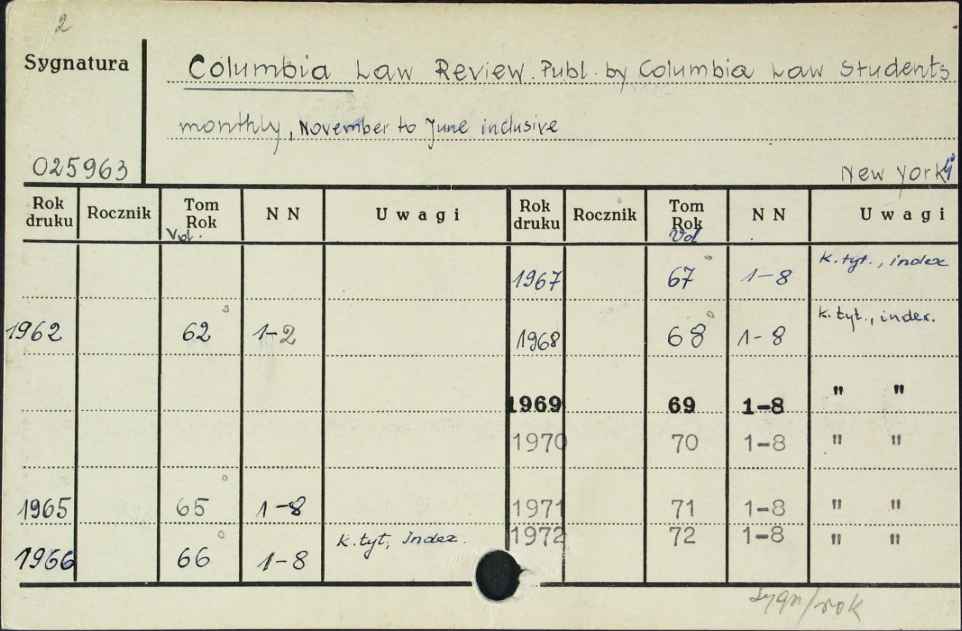 2
Sygnatura
Columbia Law Review. Publ. by Columbia Law Students
monthly, November to June inclusive
025963
New York
Rok druku Rocznik Tom Rok Vol. NN Uwagi Rok druku Rocznik Tom Rok Vol NN Uwagi
1967 67 1-8 k.tyt., index
1962 62 1-2 1968 68 1-8 k.tyt., index.
1969 69 1-8 " "
1970 70 1-8 " "
1965 65 1-8 1971 71 1-8 " "
1966 66 1-8 k.tyt, index. 1972 72 1-8 " "
sygn/rok